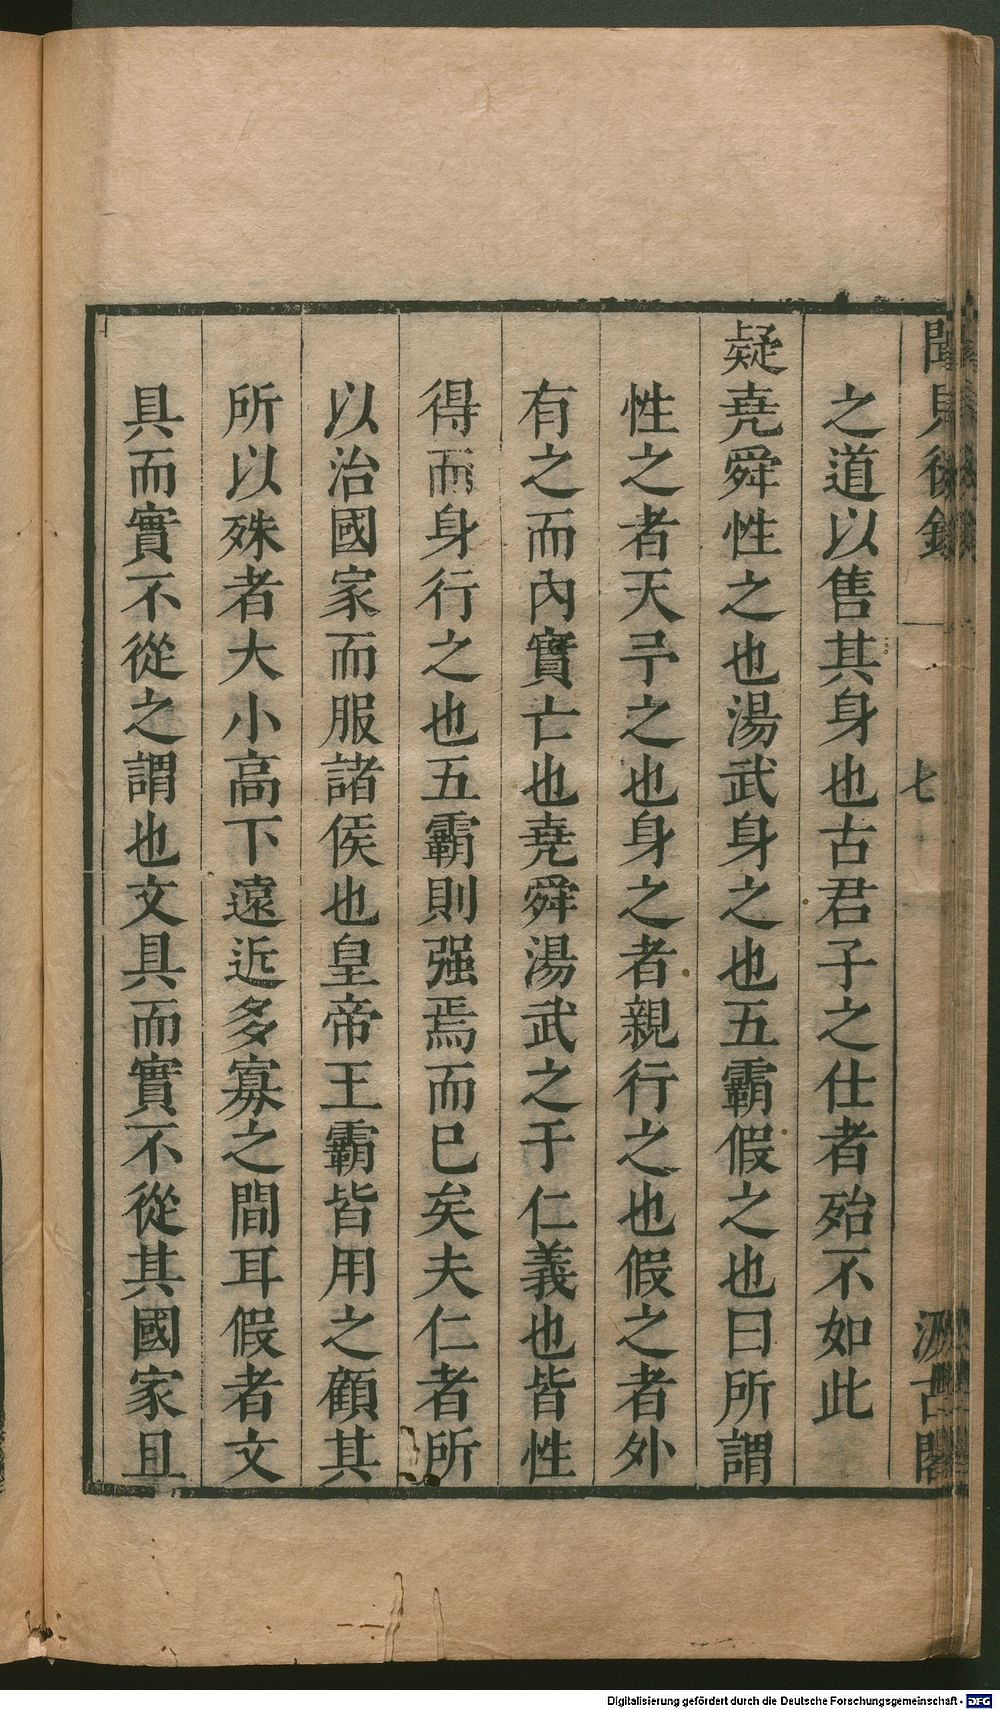 聞見後錄
七
汲古閣
之道以售其身也古君子之仕者殆不如此
疑堯舜性之也湯武身之也五霸假之也曰所謂
性之者天予之也身之者親行之也假之者外
有之而內實亡也堯舜湯武之于仁義也皆性
得而身行之也五霸則强焉而已矣夫仁者所
以治國家而服諸侯也皇帝王霸皆用之顧其
所以殊者大小高下遠近多寡之間耳假者文
具而實不從之謂也文具而實不從其國家且
Digitalisierung gefördert durch die Deutsche Forschungsgemeinschaft - DFG